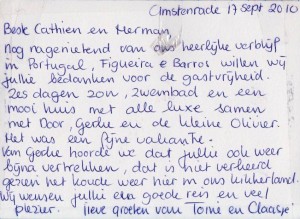 Amstenrade 17 sept 2010
Beste Cathien en Herman
nog nagenietend van ons heerlijke verblijf
in Portugal, Figueira e Barros willen wij
jullie bedanken voor de gastvrijheid.
Zes dagen zon, zwembad en een
mooi huis met alle luxe samen
met Door, Gerdie en de kleine Olivier.
Het was een fijne vakantie.
Van Gerdie hoorde we dat jullie ook weer
bijna vertrekken, dat is niet verkeerd
gezien het koude weer hier in ons kikkerland.
Wij wensen jullie een goede reis en veel
plezier. lieve groeten van Tonie en Claasje